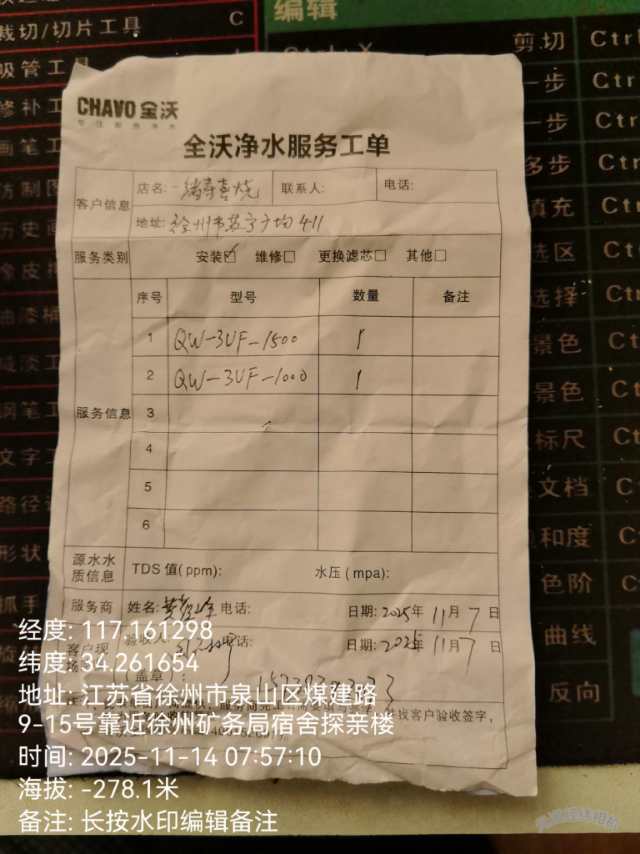 编辑
裁切/切片工具 C
Ctrl+X
剪切 Ctrl
吸管工具
一步 Ctrl
修补工
一步 Ctrl
画笔工
多步 Ctrl
仿制图
填充 Ctrl
历史画
选区 Ctrl
橡皮擦
选择 Ctrl
油漆桶
景色 Ctrl
减淡工
景色 Ctrl
钢笔工
标尺 Ctrl
文字工
文档 Ctrl
路径
和度 Ctrl
形状
色阶 Ctrl
抓手
曲线
反向
CHAVO 全沃
全沃净水服务工单
客户信息 店名: 一绪寿喜烧 联系人: 电话:
地址: 徐州市苏宁广场 411
服务类别 安装☑ 维修□ 更换滤芯□ 其他□
服务信息 序号 型号 数量 备注
1 QW-3UF-1500 1
2 QW-3UF-1000 1
3
4
5
6
源水水质信息 TDS 值(ppm): 水压(mpa):
服务商 姓名: 电话: 日期: 2025年 11月 7日
客户现场 验收人 电话: 日期: 2025年 11月 7日
盖章
找客户验收签字,
经度: 117.161298
纬度: 34.261654
地址: 江苏省徐州市泉山区煤建路
9-15号靠近徐州矿务局宿舍探亲楼
时间: 2025-11-14 07:57:10
海拔: -278.1米
备注: 长按水印编辑备注